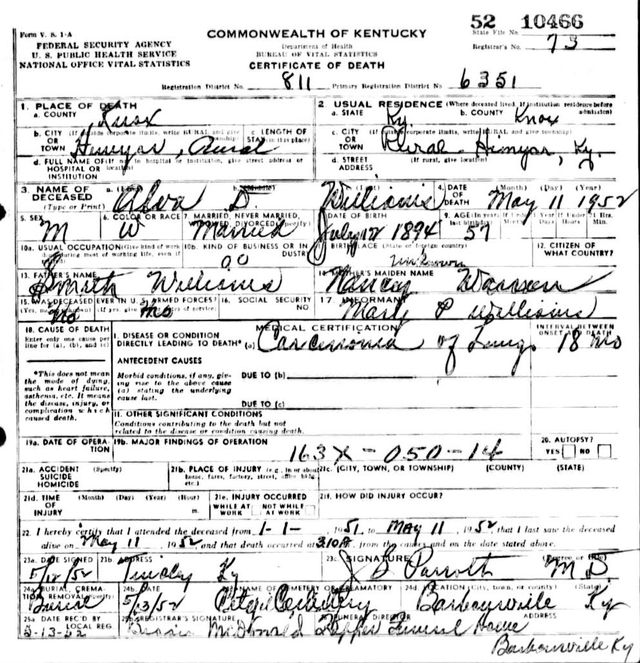 52 10466
Form V. S. 1-A
COMMONWEALTH OF KENTUCKY
State File No.
FEDERAL SECURITY AGENCY
Department of Health
Registrar's No. 73
U. S. PUBLIC HEALTH SERVICE
BUREAU OF VITAL STATISTICS
NATIONAL OFFICE VITAL STATISTICS
CERTIFICATE OF DEATH
Registration District No. 811 Primary Registration District No. 6351
1. PLACE OF DEATH
2. USUAL RESIDENCE (Where deceased lived. If institution residence before admission)
a. COUNTY Knox
a. STATE Ky. b. COUNTY Knox
b. CITY OR TOWN (If outside corporate limits, write RURAL and give township) Rural
c. LENGTH OF STAY (in this place)
c. CITY OR TOWN (If outside corporate limits, write RURAL and give township) Rural Ky.
d. FULL NAME OF (If not in hospital or institution, give street address or location) HOSPITAL OR INSTITUTION
d. STREET ADDRESS (If rural, give location)
3. NAME OF DECEASED (Type or Print)
a. (First) Alva b. D. Williams
4. DATE OF DEATH (Month) (Day) (Year) May 11 1952
5. SEX M
6. COLOR OR RACE W
7. MARRIED, NEVER MARRIED, WIDOWED, DIVORCED Married
8. DATE OF BIRTH July 12 1894
9. AGE (In years last birthday) 57
10a. USUAL OCCUPATION (Give kind of work done during most of working life, even if retired)
10b. KIND OF BUSINESS OR INDUSTRY
11. BIRTHPLACE (State or foreign country) Unknown
12. CITIZEN OF WHAT COUNTRY?
13. FATHER'S NAME Smith Williams
14. MOTHER'S MAIDEN NAME Nancy
15. WAS DECEASED EVER IN U. S. ARMED FORCES? No no
16. SOCIAL SECURITY NO.
17. INFORMANT Williams
18. CAUSE OF DEATH
MEDICAL CERTIFICATION
INTERVAL BETWEEN ONSET AND DEATH
Enter only one cause per line for (a), (b), and (c)
I. DISEASE OR CONDITION DIRECTLY LEADING TO DEATH* (a) Carcinoma of Lungs 18 mo
ANTECEDENT CAUSES
*This does not mean the mode of dying, such as heart failure, asthenia, etc. It means the disease, injury, or complication which caused death.
Morbid conditions, if any, giving rise to the above cause (a) stating the underlying cause last.
DUE TO (b)
DUE TO (c)
II. OTHER SIGNIFICANT CONDITIONS
Conditions contributing to the death but not related to the disease or condition causing death.
19a. DATE OF OPERATION
19b. MAJOR FINDINGS OF OPERATION
163X-050-14
20. AUTOPSY? YES NO
21a. ACCIDENT SUICIDE HOMICIDE (Specify)
21b. PLACE OF INJURY (e.g., in or about home, farm, factory, street, office bldg., etc.)
21c. (CITY, TOWN, OR TOWNSHIP) (COUNTY) (STATE)
21d. TIME OF INJURY (Month) (Day) (Year) (Hour)
21e. INJURY OCCURRED WHILE AT WORK NOT WHILE AT WORK
21f. HOW DID INJURY OCCUR?
22. I hereby certify that I attended the deceased from 1-1-, 1951, to May 11, 1952 that I last saw the deceased
alive on May 11, 1952 and that death occurred at 3:10A m., from the causes and on the date stated above.
23a. DATE SIGNED 5/12/52
23b. ADDRESS Ky
23. SIGNATURE (Degree or title) M D.
24a. BURIAL, CREMATION, REMOVAL (Specify) Burial
24b. DATE 5/13/52
24c. NAME OF CEMETERY OR CREMATORY City Cemetery
24d. LOCATION (City, town, or county) (State) Barbourville Ky
25a. DATE REC'D BY LOCAL REG. 5-13-52
25b. REGISTRAR'S SIGNATURE McDonald
FUNERAL DIRECTOR ADDRESS Hopper Funeral Home
Barbourville Ky